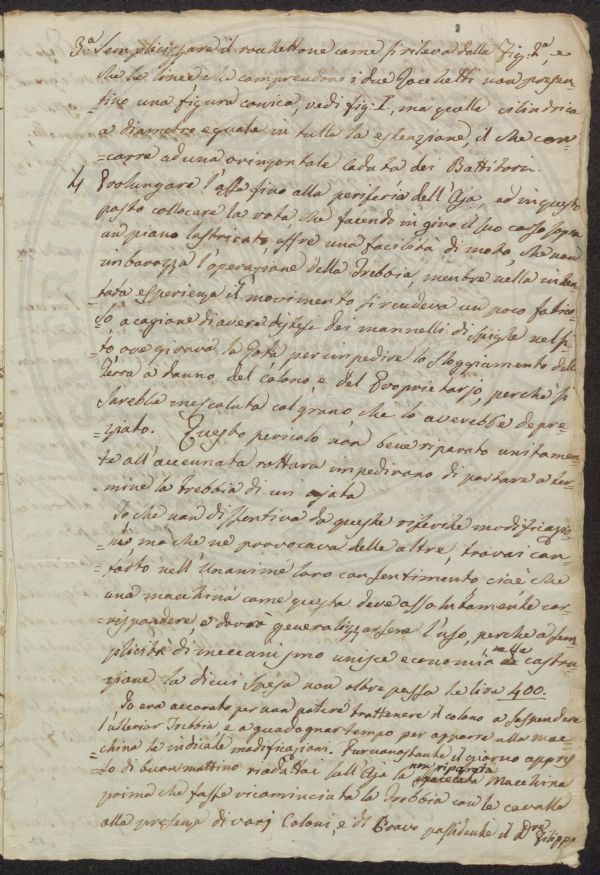 3.º Semplicizzare il rocchettone come si rileva dalla Fig: 2.ª, e
che le linee che comprendono i due Rocchetti non presen-
=tino una figura conica, vedi fig: I, ma quella cilindrica
a diametro eguale in tutta la estenzione, il che con-
=corre ad una orizontale caduta dei Battitori.
4 Prolungare l'asse fino alla periferia dell'Aja, ed in questo
posto collocare la rota che facendo in giro il suo corso sopra
un piano lastricato, offre una facilità di moto, che non
imbarazza l'operazione della Trebbia, mentre nella inten-
tata esperienza il movimento si rendeva un poco fatico-
=so, a cagione di avere distesi dei mannelli di spighe nel si-
=to ove girava la Rota per impedire lo sloggiamento della
Terra a danno del Colono, e del Proprietario, perchè si
sarebbe mescolata col grano che lo averebbe depre-
=zzato. Questo pericolo non bene riparato unitamen-
te all'accennata rottura impedirono di portare a ter-
mine la trebbia di un ajata
Io che non dissentiva da queste riferite modificazio-
=ni ma che ne provocava delle altre, trovai con-
=forto nell'Unanime loro consentimento cioè che
una macchina come questa deve assolutamente cor-
=rispondere, e dovrà generalizzarsene l'uso, perchè a sem-
plicità di meccanismo unisce economia nella costru-
=zione la di cui spesa non oltre passa le lire 400.
Io era accorato per non potere trattenere il colono a sospendere
l'ulterior Trebbia e a guadagnar tempo per apporre alla mac-
china le indicate modificazioni. Nonostante il giorno appres-
=so di buon mattino riadattai sull'Aja la non riparata Macchina
prima che fosse ricominciata la Trebbia con le cavalle
alla presenza di varj Coloni, e di bravo possidente il Dre Filippo